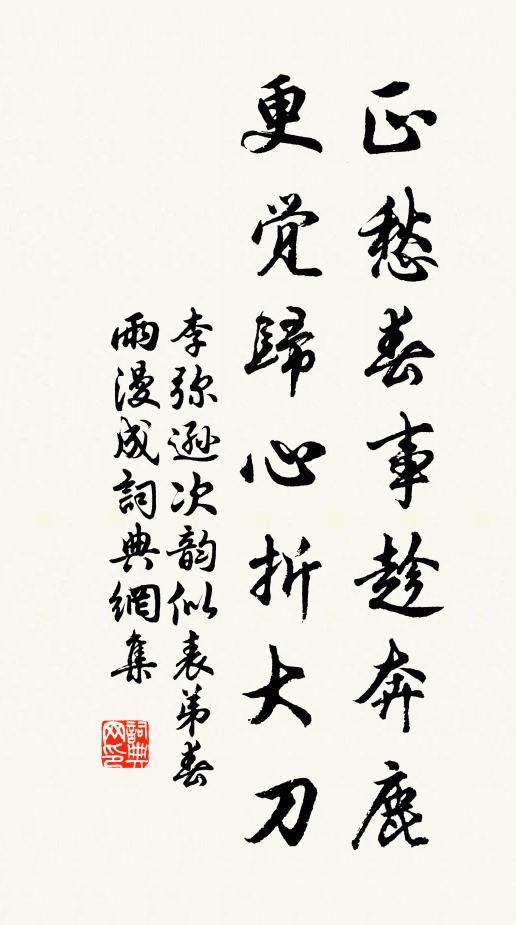 正愁春事趁奔鹿
更觉歸心折大刀
李弥遜次韵似表弟春
雨漫成詞典網集
詞典网印